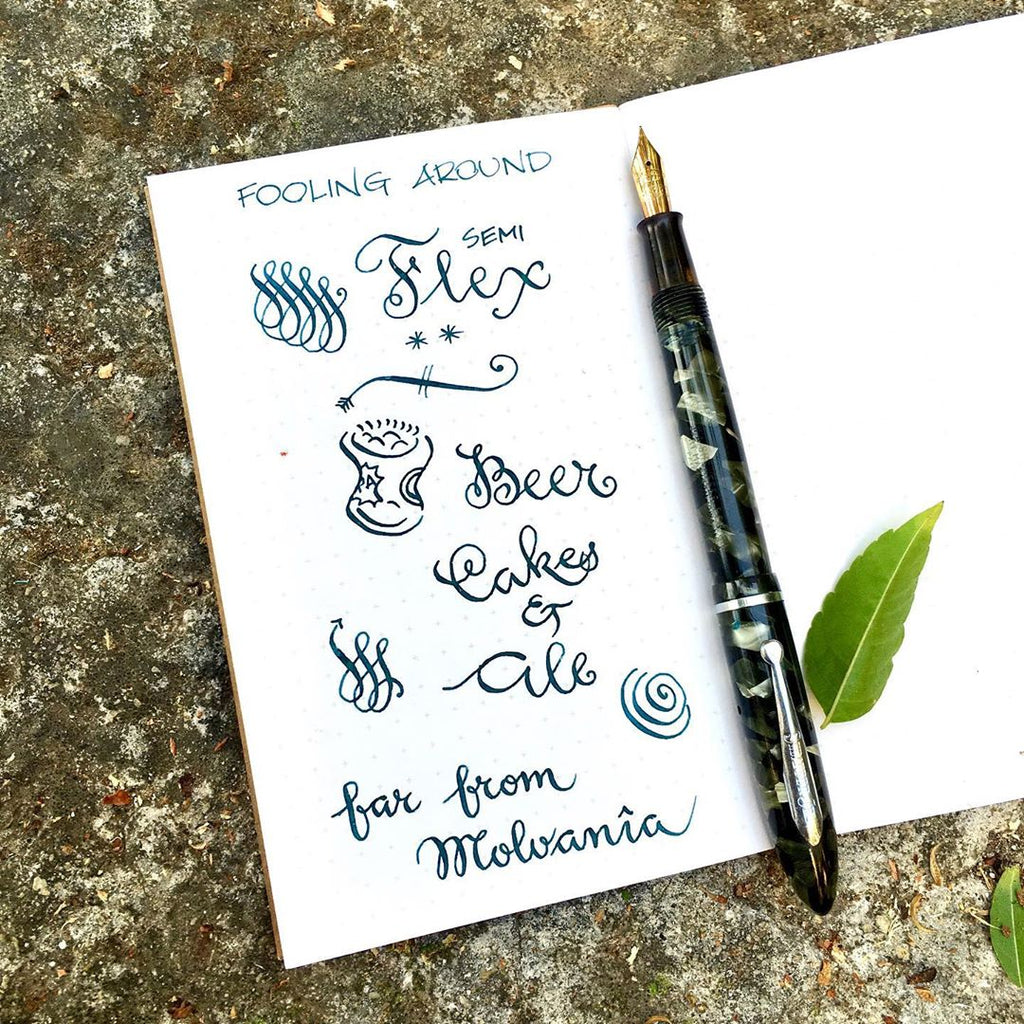 FOOLING AROUND
SEMI
Flex
Beer
Cakes
&
Ale
far from
Molvanîa